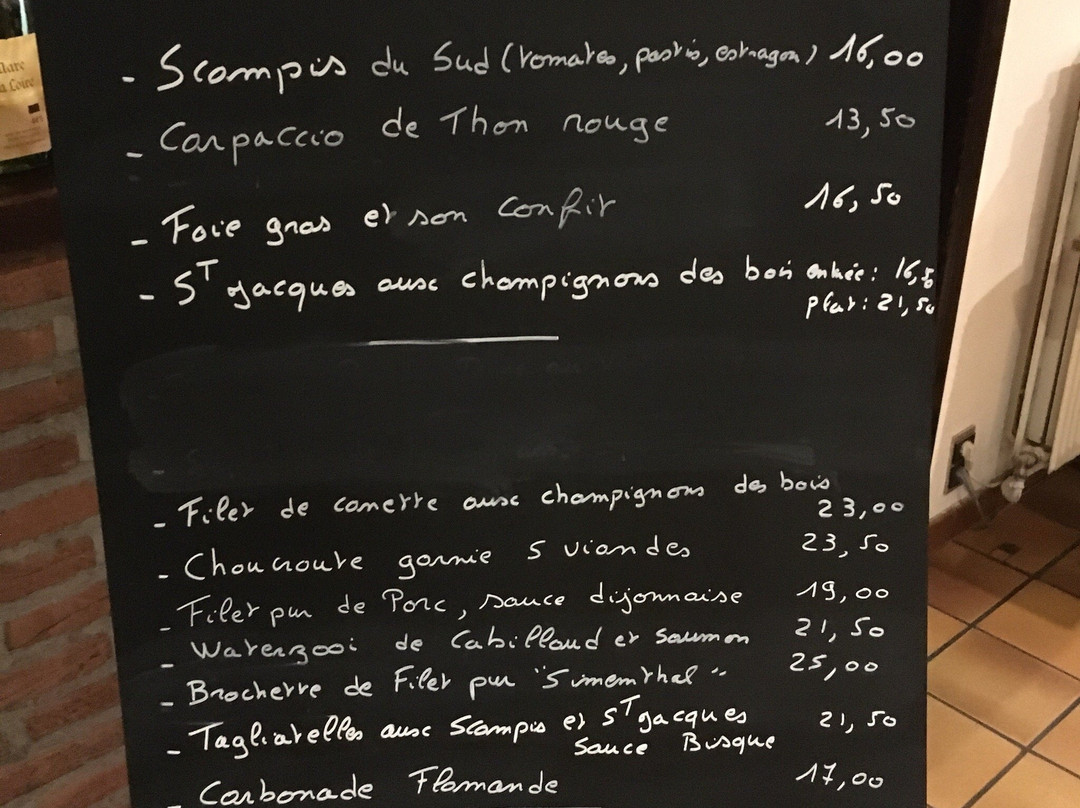 - Scampis du Sud (tomates, pastis, estragon) 16,00
- Carpaccio de Thon rouge 13,50
- Foie gras et son confit 16,50
- ST Jacques aux champignons des bois entrée : 16,5
plat : 21,50
- Filet de canette aux champignons des bois
23,00
- Choucroute garnie 5 viandes 23,50
- Filet pur de Porc, sauce dijonnaise 19,00
- Waterzooi de Cabillaud et saumon 21,50
- Brochette de Filet pur "Simenthal" 25,00
- Tagliatelles aux Scampis et ST Jacques 21,50
Sauce Bisque
- Carbonade Flamande 17,00